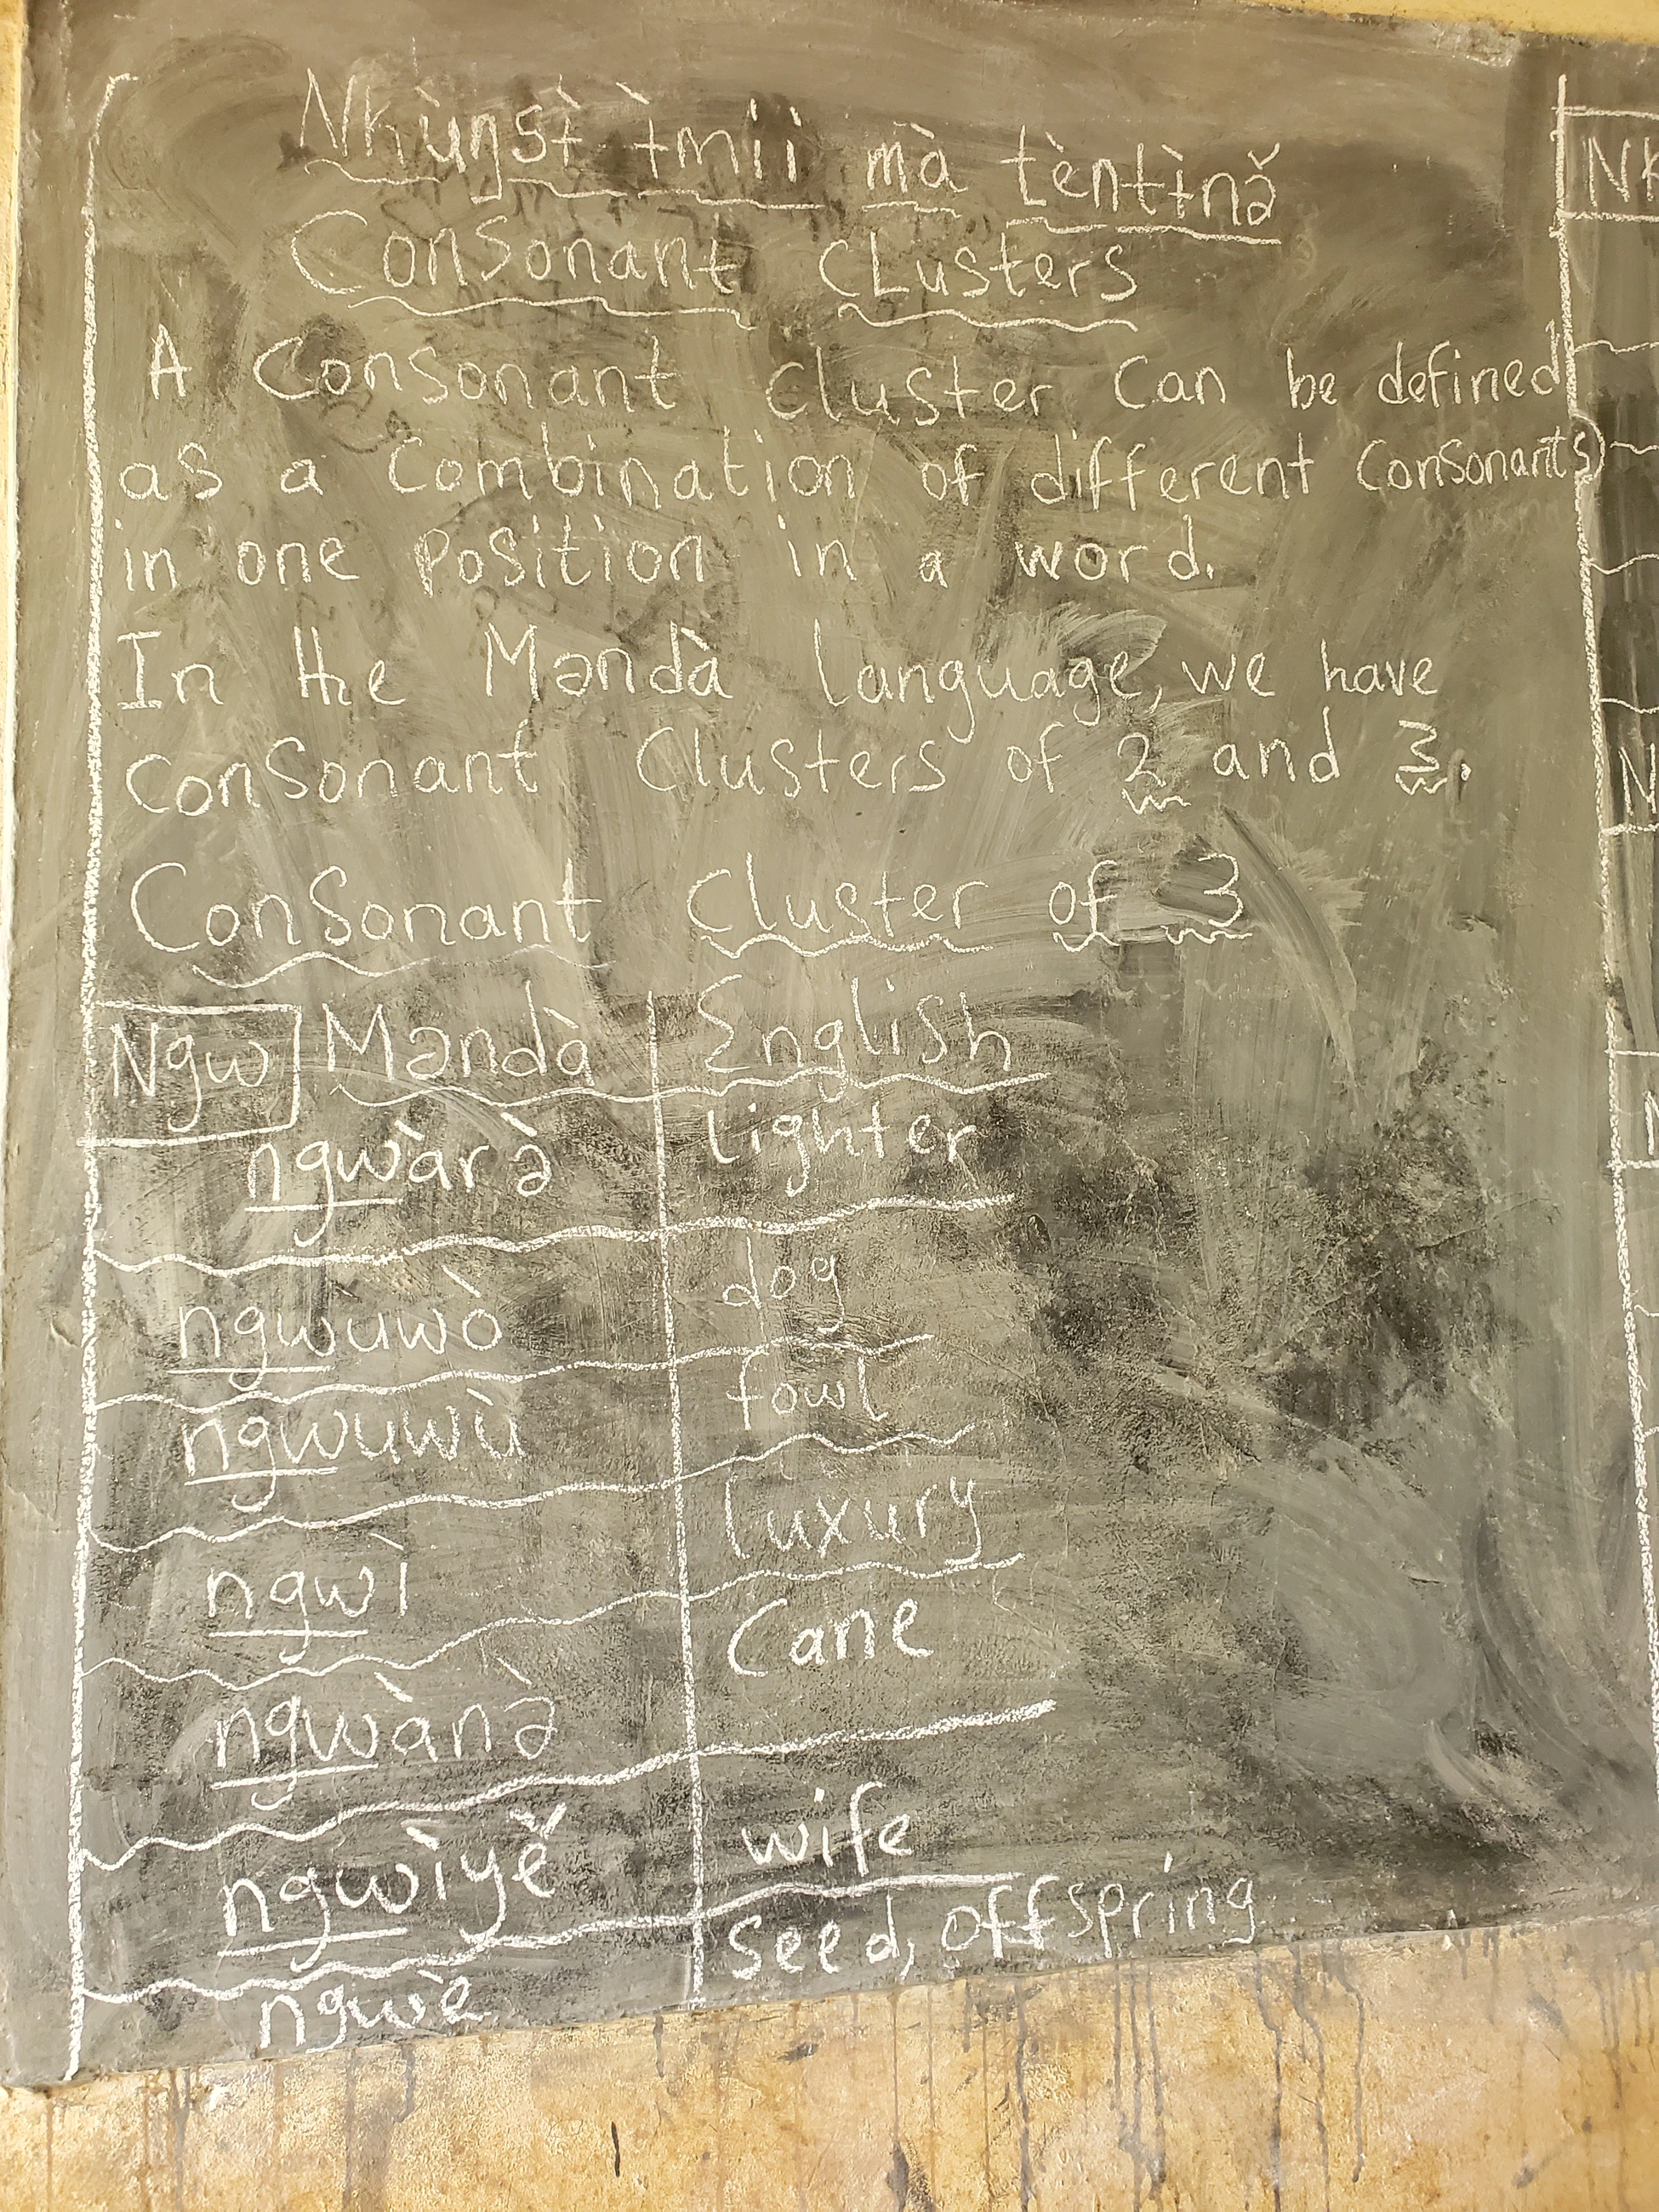 Nkùŋsɨ̀ ɨ̀mii mà tèntɨ̀nə̌
Consonant cLusters
A Consonant cluster Can be defined
as a Combination of different Consonants
in one position in a word.
In the Məndà language, we have
consonant Clusters of 2 and 3.
Consonant cluster of 3
Ngw Məndà English
ngwàrə̀ lighter
ngwùwò dog
ngwuwù fowl
ngwì luxury
ngwànə̀ Cane
ngwìyě wife
ngwè seed, offspring